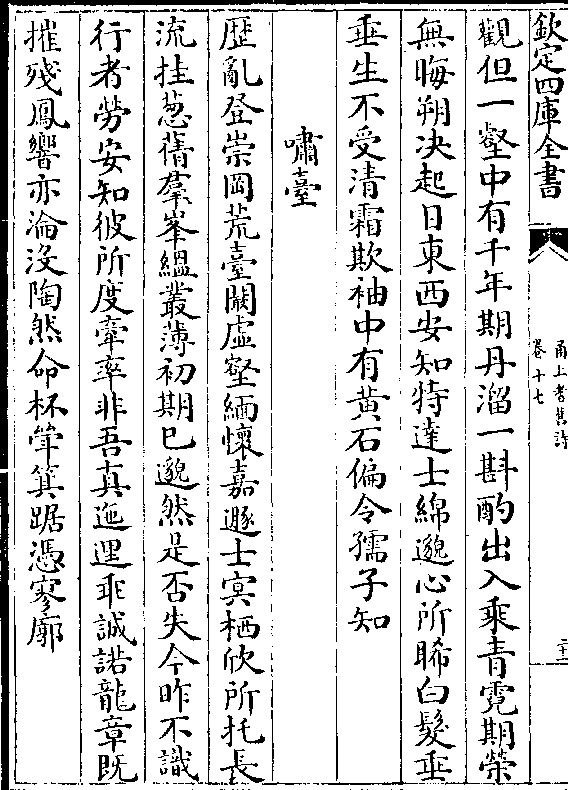 欽定四庫全書
甬上耆舊詩
卷十七
二十二
觀但一壑中有千年期丹溜一斟酌出入乘青霓期榮
無晦朔決起日東西安知特達士綿邈心所晞白髮垂
垂生不受清霜欺袖中有黄石偏令孺子知
嘯臺
歴亂登崇岡荒臺闞虚壑緬懷嘉遯士冥栖欣所托長
流挂葱蒨羣峯緼叢薄初期已邈然是否失今昨不識
行者勞安知彼所度牽率非吾真迤逕乖誠諾龍章既
摧殘鳳響亦淪没陶然命杯斝箕踞憑寥廓